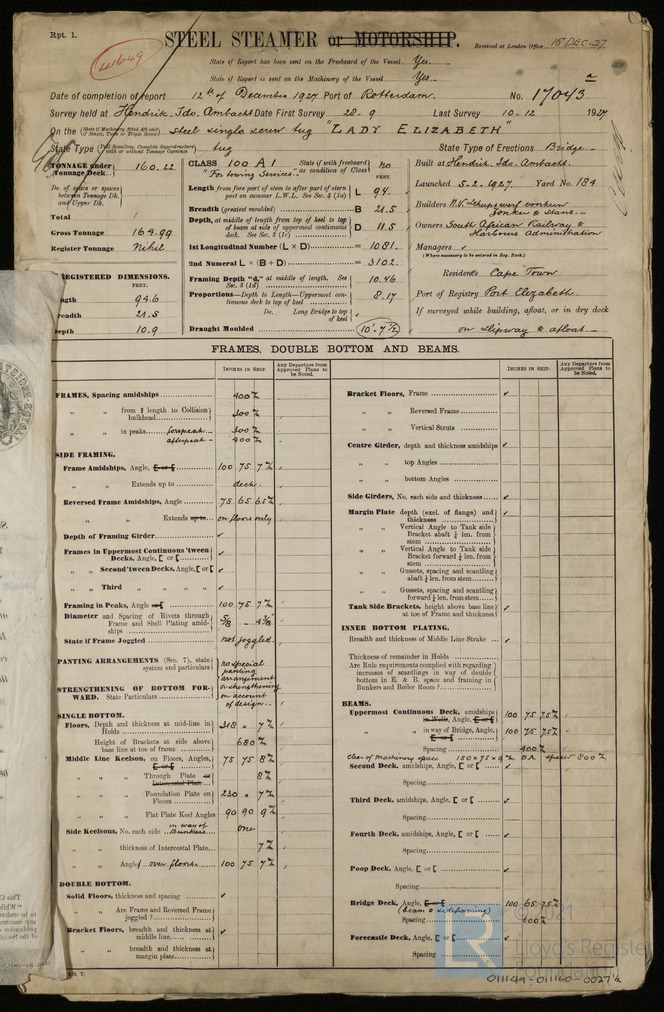 Rpt. 1.
STEEL STEAMER or MOTORSHIP.
Received at London Office 16 DEC. 27
State if Report has been sent on the Freeboard of the Vessel Yes.
State if Report is sent on the Machinery of the Vessel Yes.
Date of completion of report 12th of December 1927 Port of Rotterdam. No. 17043
Survey held at Hendrik. Ido. Ambacht Date First Survey 28-9 Last Survey 10-12 1927
On the steel single screw tug "LADY ELIZABETH"
State Type tug State Type of Erections Bridge
TONNAGE under Tonnage Deck 160.22
Do. of space or spaces between Tonnage Dk. and Upper Dk.
Total
Gross Tonnage 164.99
Register Tonnage Nihil
REGISTERED DIMENSIONS.
FEET.
Length 94.6
Breadth 21.5
Depth 10.9
CLASS 100 A1 State if with freeboard as condition of Class no
"For towing Services"
FEET.
Length from fore part of stem to after part of stern post on summer L.W.L. See Sec. 3 (1a) L 94.
Breadth (greatest moulded) B 21.5
Depth, at middle of length from top of keel to top of beam at side of uppermost continuous deck. See Sec. 3 (1c) D 11.5
1st Longitudinal Number (L × D) = 1081.
2nd Numeral L × (B + D) = 3102.
Framing Depth "d," at middle of length. See Sec. 3 (1d) 10.46
Proportions—Depth to Length—Uppermost continuous deck to top of keel 8.17
Do. Long Bridge to top of keel
Draught Moulded 10'-7½"
Built at Hendrik. Ido. Ambacht.
Launched 5-2-1927. Yard No. 184
Builders N.V. Scheepswerf voorheen Jonker & Stans.
Owners South African Railway & Harbours Administration
Managers
(Where necessary to be entered in Reg. Book.)
Residence Cape Town
Port of Registry Port Elizabeth.
If surveyed while building, afloat, or in dry dock
on slipway & afloat.
FRAMES, DOUBLE BOTTOM AND BEAMS.
INCHES IN SHIP. Any Departure from Approved Plans to be Noted.
INCHES IN SHIP. Any Departure from Approved Plans to be Noted.
FRAMES, Spacing amidships 400
" " from ⅗ length to Collision bulkhead 300
" " in peaks forepeak 300
afterpeak 400
SIDE FRAMING.
Frame Amidships, Angle, 100 75 7
" " Extends up to deck.
Reversed Frame Amidships, Angle 75 65 6.5
" " Extends up to on floors only
Depth of Framing Girder
Frames in Uppermost Continuous 'tween Decks, Angle, [ or [
" " Second 'tween Decks, Angle, [ or [
" " Third " " " "
Framing in Peaks, Angle 100 75 7
Diameter and Spacing of Rivets through Frame and Shell Plating amidships 5/8 - 4 3/8
State if Frame Joggled not joggled.
PANTING ARRANGEMENTS (Sec. 7), state system and particulars
no special panting arrangement or strengthening on account of design
STRENGTHENING OF BOTTOM FORWARD. State Particulars
SINGLE BOTTOM.
Floors, Depth and thickness at mid-line in Holds 318 × 7
Height of Brackets at side above base line at toe of frame 680
Middle Line Keelson, on Floors, Angles, 75 75 8
" " Through Plate or Intercostal Plate 8
" " Foundation Plate on Floors 230 × 7
" " Flat Plate Keel Angles 90 90 9
Side Keelsons, No. each side in way of Bunkers one
" " thickness of Intercostal Plate 7
" " Angle over floors 100 75 7
DOUBLE BOTTOM.
Solid Floors, thickness and spacing
" " Are Frame and Reversed Frame joggled?
Bracket Floors, breadth and thickness at middle line
" " breadth and thickness at margin plate
Bracket Floors, Frame
" " Reversed Frame
" " Vertical Struts
Centre Girder, depth and thickness amidships
" " top Angles
" " bottom Angles
Side Girders, No. each side and thickness
Margin Plate depth (excl. of flange) and thickness
" " Vertical Angle to Tank side Bracket abaft ¼ len. from stem
" " Vertical Angle to Tank side Bracket forward ¼ len. from stem
" " Gussets, spacing and scantling abaft ¼ len. from stem
" " Gussets, spacing and scantling forward ¼ len. from stem
Tank Side Brackets, height above base line at toe of Frame and thickness
INNER BOTTOM PLATING.
Breadth and thickness of Middle Line Strake
Thickness of remainder in Holds
Are Rule requirements complied with regarding increases of scantlings in way of double bottom in E. & B. space and framing in Bunkers and Boiler Room?
BEAMS.
Uppermost Continuous Deck, amidships in Wells, Angle, [ or [ 100 75 7.5
" " in way of Bridge, Angle, [ or [ 100 75 7.5
Spacing 400
clear of machinery space 150 × 75 × 9 BA spaced 800
Second Deck, amidships, Angle, [ or [
Spacing
Third Deck, amidships, Angle, [ or [
Spacing
Fourth Deck, amidships, Angle, [ or [
Spacing
Poop Deck, Angle, [ or [
Spacing
Bridge Deck, Angle, [ or [ 100 65 7.5
Spacing 600
Forecastle Deck, Angle, [ or [
Spacing
© 2021
Lloyd's Register
Foundation
LR
011149-011160-0027½